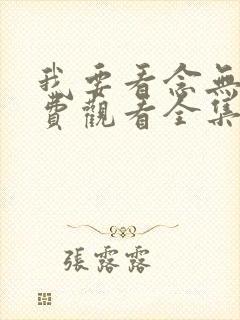 我要看念無
費觀看全集
張露露